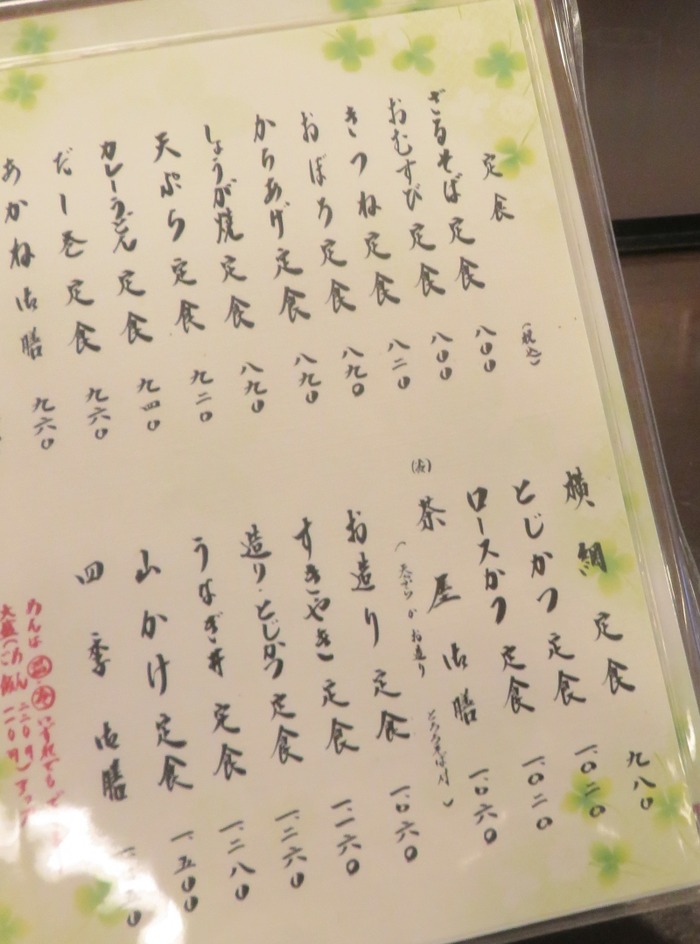 定食
(税込)
ざるそば定食 八〇〇
おむすび定食 八〇〇
きつね定食 八二〇
おぼろ定食 八九〇
からあげ定食 八九〇
しょうが焼定食 八九〇
天ぷら定食 九二〇
カレーうどん定食 九四〇
だし巻定食 九六〇
あかね御膳 九六〇
横綱定食 九八〇
とじかつ定食 一、〇二〇
ロースかつ定食 一、〇二〇
茶屋御膳 一、〇六〇
(天ぷらかお造り とろろそば付)
お造り定食 一、〇六〇
すきやき定食 一、一六〇
造り・とじかつ定食 一、二六〇
うなぎ丼定食 一、二八〇
山かけ定食 一、五〇〇
四季御膳
めんは いずれでも
大盛(めん二二〇円)
(ご飯一一〇円)